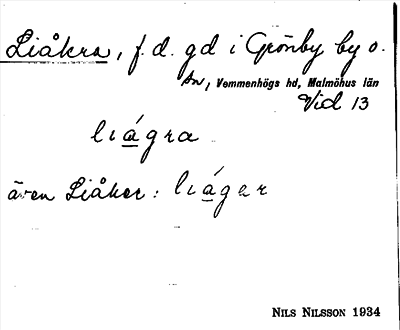 Liåkra, f. d. gd i Grönby by o.
sn, Vemmenhögs hd, Malmöhus län
Vid 13
liágra
även Liåker: liáger
NILS NILSSON 1934